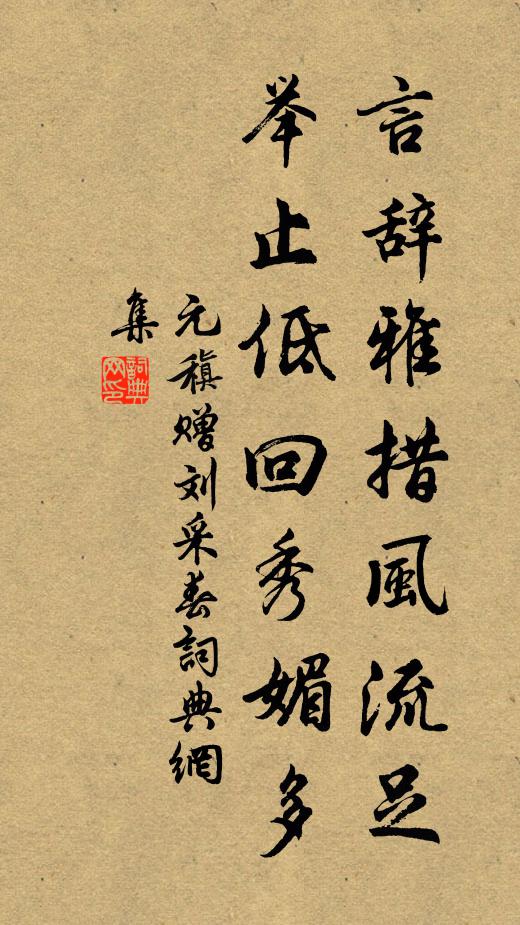 言辞雅措風流足
举止低回秀媚多
元稹赠刘采春詞典網
集
詞典
网印